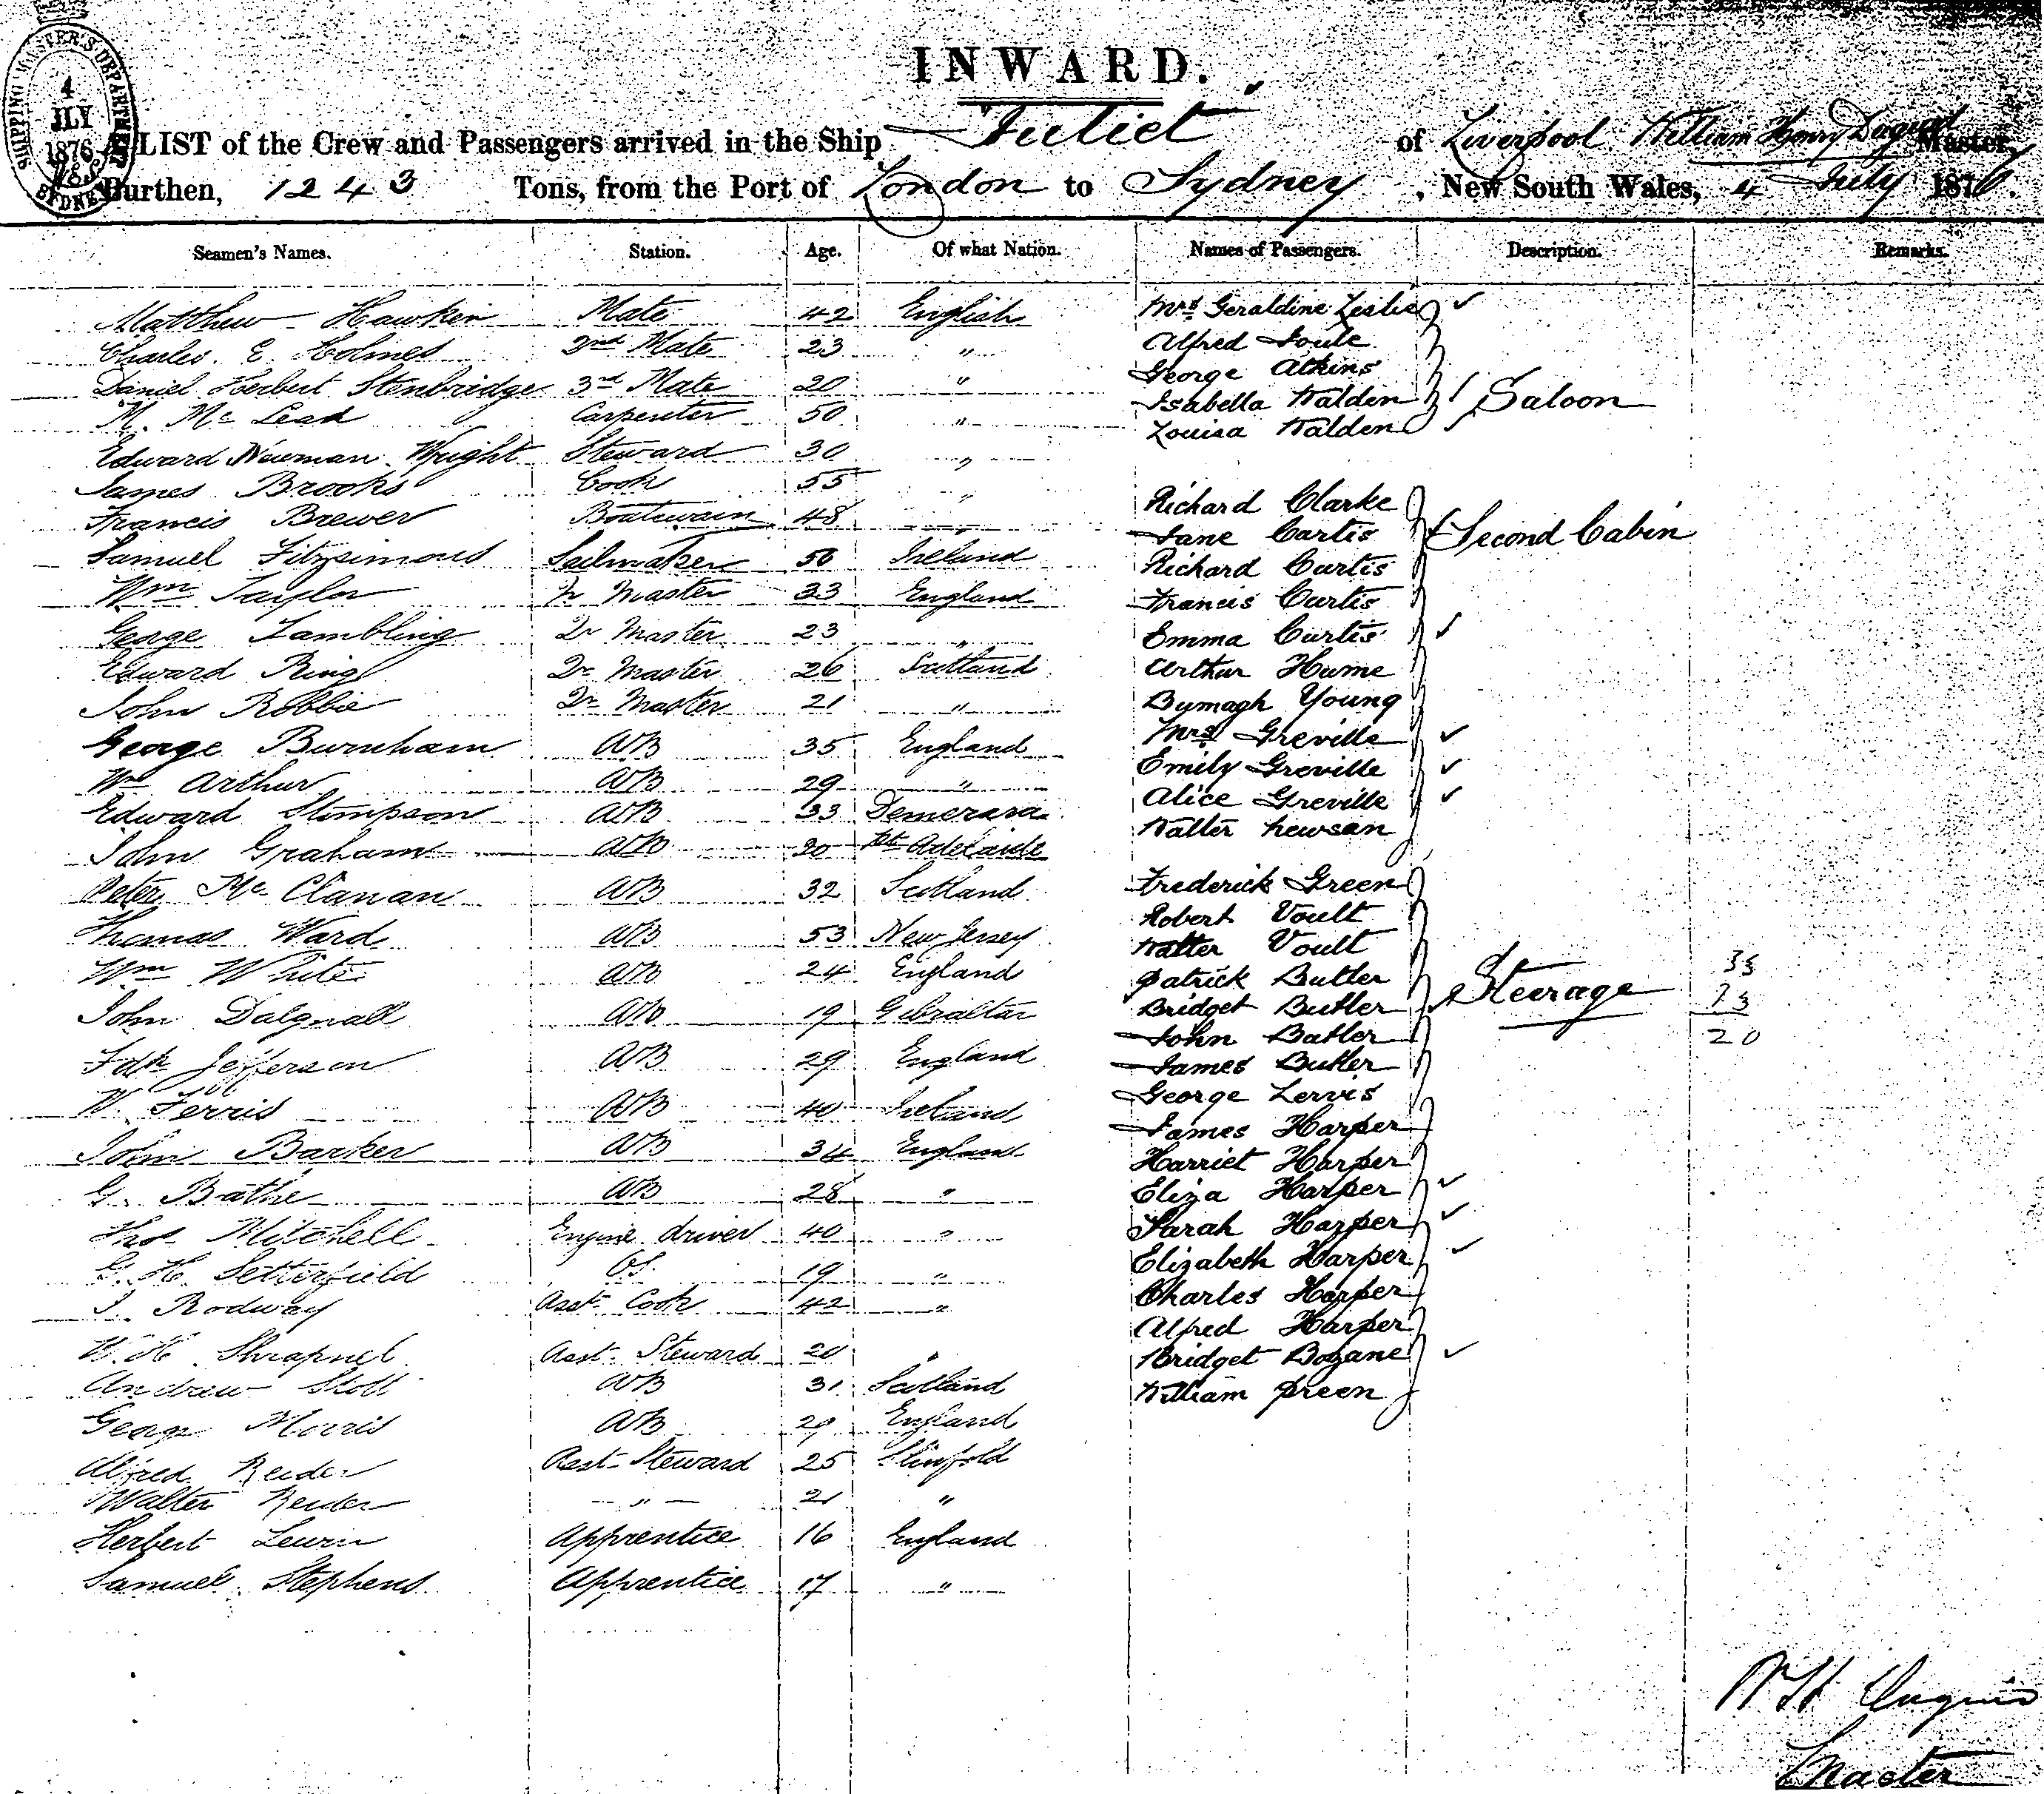 SHIPPING MASTER'S DEPARTMENT
4
JLY
1876
SYDNEY
INWARD.
A LIST of the Crew and Passengers arrived in the Ship Juliet of Liverpool William Henry Master,
Burthen, 1243 Tons, from the Port of London to Sydney, New South Wales, 4 July 1876.
Seamen's Names. Station. Age. Of what Nation. Names of Passengers. Description. Remarks.
Matthew Hawken Mate 42 English Mrs Geraldine Leslie ✓
Charles E Holmes 2nd Mate 23 " Alfred Soule
Daniel Herbert Stenbridge 3rd Mate 20 " George Atkins
M. Mc Lead Carpenter 50 " Isabella Walden Saloon
Edward Newman Wright Steward 30 " Louisa Walden
James Brooks Cook 55 "
Francis Brewer Boatswain 48 " Richard Clarke
Samuel Fitzsimons Sailmaker 50 Ireland Jane Curtis Second Cabin
Wm Taylor Qr Master 33 England Richard Curtis
George Lambling Qr Master 23 " Francis Curtis
Edward Ring Qr Master 26 Scotland Emma Curtis ✓
John Robbie Qr Master 21 " Arthur Hume
George Burnham AB 35 England Bymagh Young
Wm Arthur AB 29 " Mrs Greville ✓
Edward Stimpson AB 33 Demerara Emily Greville ✓
John Graham AB 20 Pt Adelaide Alice Greville ✓
Walter hewsan
Peter Mc Clanan AB 32 Scotland Frederick Green
Thomas Ward AB 53 New Jersey Robert Voult
Wm White AB 24 England Walter Voult
John Dalgnall AB 19 Gibraltar Patrick Butler 33
Fdk Jefferson AB 29 England Bridget Butler Steerage 13
W. Ferris AB 40 Ireland John Butler 20
John Barker AB 34 England James Butler
G. Bathe AB 28 " George Lervis
Thos Mitchell Engine driver 40 " James Harper
G. H. Setterfield OS 19 " Harriet Harper
J. Rodway Asst Cook 42 " Eliza Harper ✓
W. H Shrapnel Asst Steward 20 " Sarah Harper ✓
Andrew Stott AB 31 Scotland Elizabeth Harper ✓
George Morris AB 29 England Charles Harper
Alfred Reider Asst Steward 25 Slinfold Alfred Harper
Walter Reider " 21 " Bridget Bozane ✓
Herbert Lewin Apprentice 16 England William Green
Samuel Stephens Apprentice 17 "
W H
Master